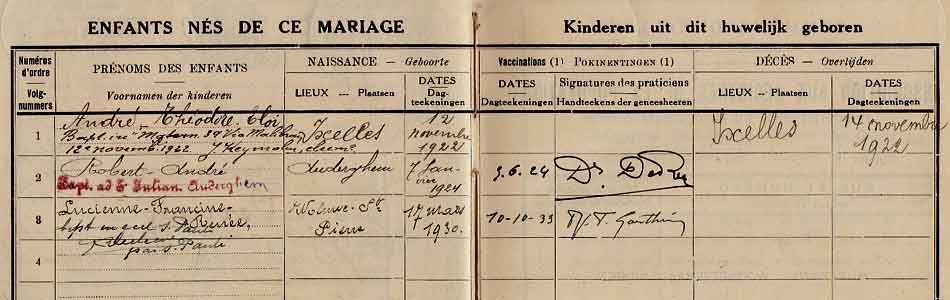 ENFANTS NÉS DE CE MARIAGE
Kinderen uit dit huwelijk geboren
Numéros d'ordre
Volg-nummers
PRÉNOMS DES ENFANTS
Voornamen der kinderen
NAISSANCE — Geboorte
LIEUX — Plaatsen
DATES
Dag-teekeningen
Vaccinations (1) POKINENTINGEN (1)
DATES
Dagteekeningen
Signatures des praticiens
Handteekens der geneesheeren
DÉCÈS — Overlijden
LIEUX — Plaatsen
DATES
Dagteekeningen
1
André Théodore Eloi
Bapt. in
12e novemb. 1922
Ixelles
12
novembre
1922
Ixelles
14 novembre
1922
2
Robert-André
Bapt. ad St Julian. Auderghem
Auderghem
7 jan-
vier
1924
5.6.24
Dr.
3
Lucienne-Francine-
Renée,
bapt in eccl S. Pauli
par. S. Pauli
Woluwe-St
Pierre
17 mars
1930.
10-10-33
4